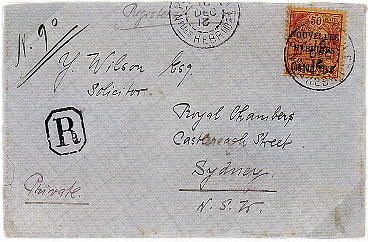 Registered
N. 90
DEC
12
HEBRIDES
50
NOUVELLES
HEBRIDES
Y. Wilson Esq.
Solicitor
Royal Chambers
Castlereagh Street
Sydney
N. S. W.
R
Private